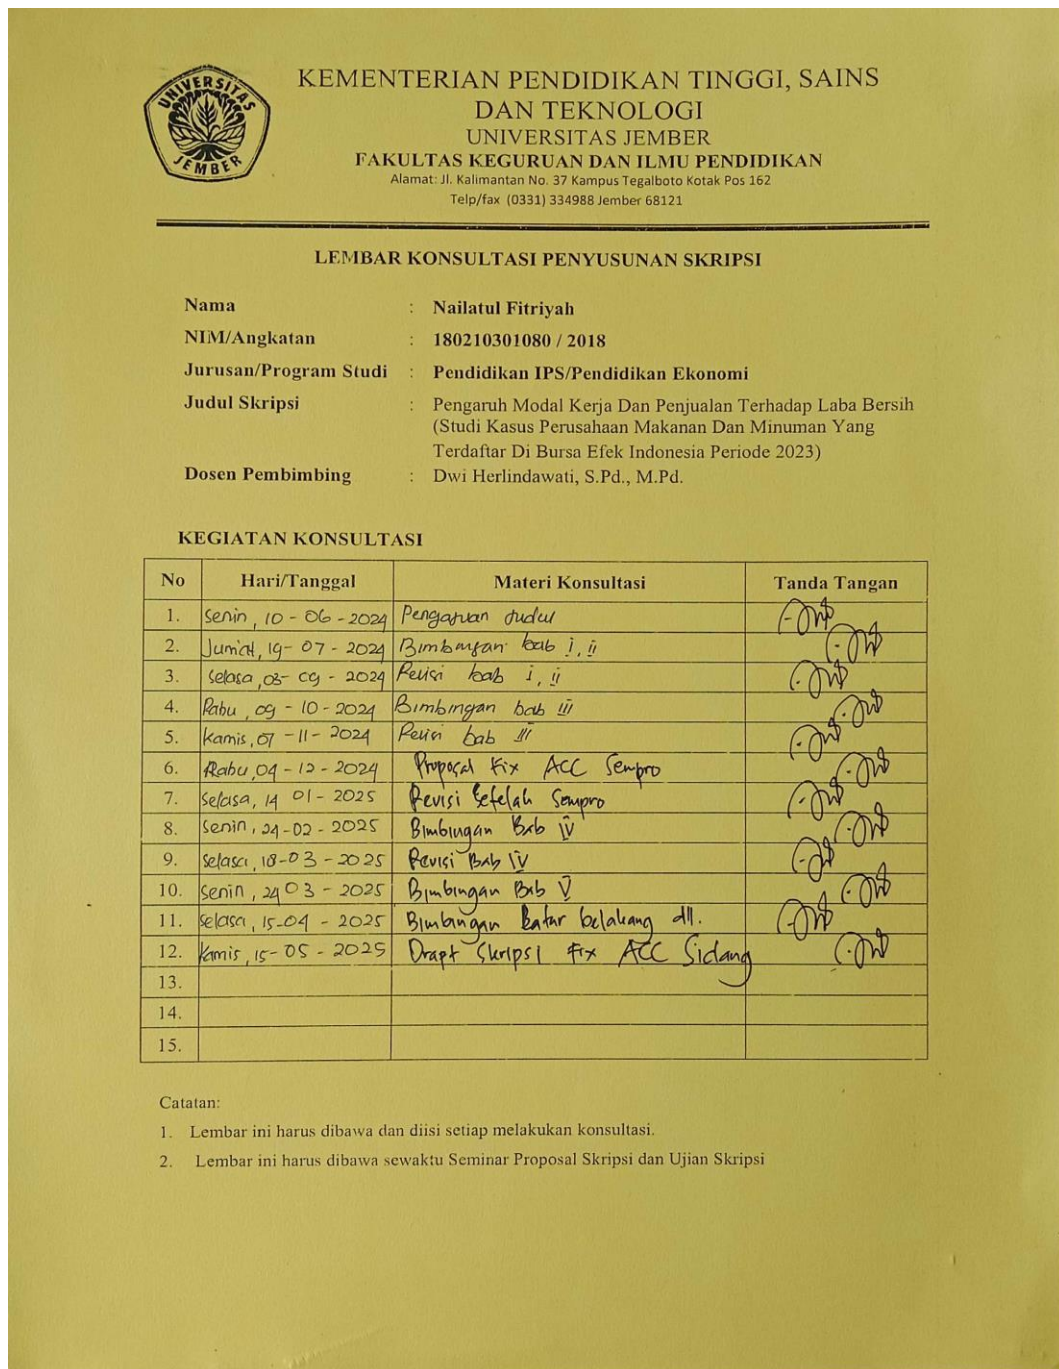 UNIVERSITAS
JEMBER
KEMENTERIAN PENDIDIKAN TINGGI, SAINS
DAN TEKNOLOGI
UNIVERSITAS JEMBER
FAKULTAS KEGURUAN DAN ILMU PENDIDIKAN
Alamat: Jl. Kalimantan No. 37 Kampus Tegalboto Kotak Pos 162
Telp/fax (0331) 334988 Jember 68121
LEMBAR KONSULTASI PENYUSUNAN SKRIPSI
Nama : Nailatul Fitriyah
NIM/Angkatan : 180210301080 / 2018
Jurusan/Program Studi : Pendidikan IPS/Pendidikan Ekonomi
Judul Skripsi : Pengaruh Modal Kerja Dan Penjualan Terhadap Laba Bersih
(Studi Kasus Perusahaan Makanan Dan Minuman Yang
Terdaftar Di Bursa Efek Indonesia Periode 2023)
Dosen Pembimbing : Dwi Herlindawati, S.Pd., M.Pd.
KEGIATAN KONSULTASI
No Hari/Tanggal Materi Konsultasi Tanda Tangan
1. Senin, 10 - 06 - 2024 Pengajuan Judul
2. Jum'at, 19 - 07 - 2024 Bimbingan bab i, ii
3. Selasa, 03 - 09 - 2024 Revisi bab i, ii
4. Rabu, 09 - 10 - 2024 Bimbingan bab iii
5. Kamis, 07 - 11 - 2024 Revisi bab iii
6. Rabu, 04 - 12 - 2024 Proposal Fix ACC Sempro
7. Selasa, 14 01 - 2025 Revisi Setelah Sempro
8. Senin, 24 - 02 - 2025 Bimbingan Bab IV
9. Selasa, 18 - 03 - 2025 Revisi Bab IV
10. Senin, 24 03 - 2025 Bimbingan Bab V
11. Selasa, 15 - 04 - 2025 Bimbingan Latar belakang dll.
12. Kamis, 15 - 05 - 2025 Drapt Skripsi Fix ACC Sidang
13.
14.
15.
Catatan:
1. Lembar ini harus dibawa dan diisi setiap melakukan konsultasi.
2. Lembar ini harus dibawa sewaktu Seminar Proposal Skripsi dan Ujian Skripsi